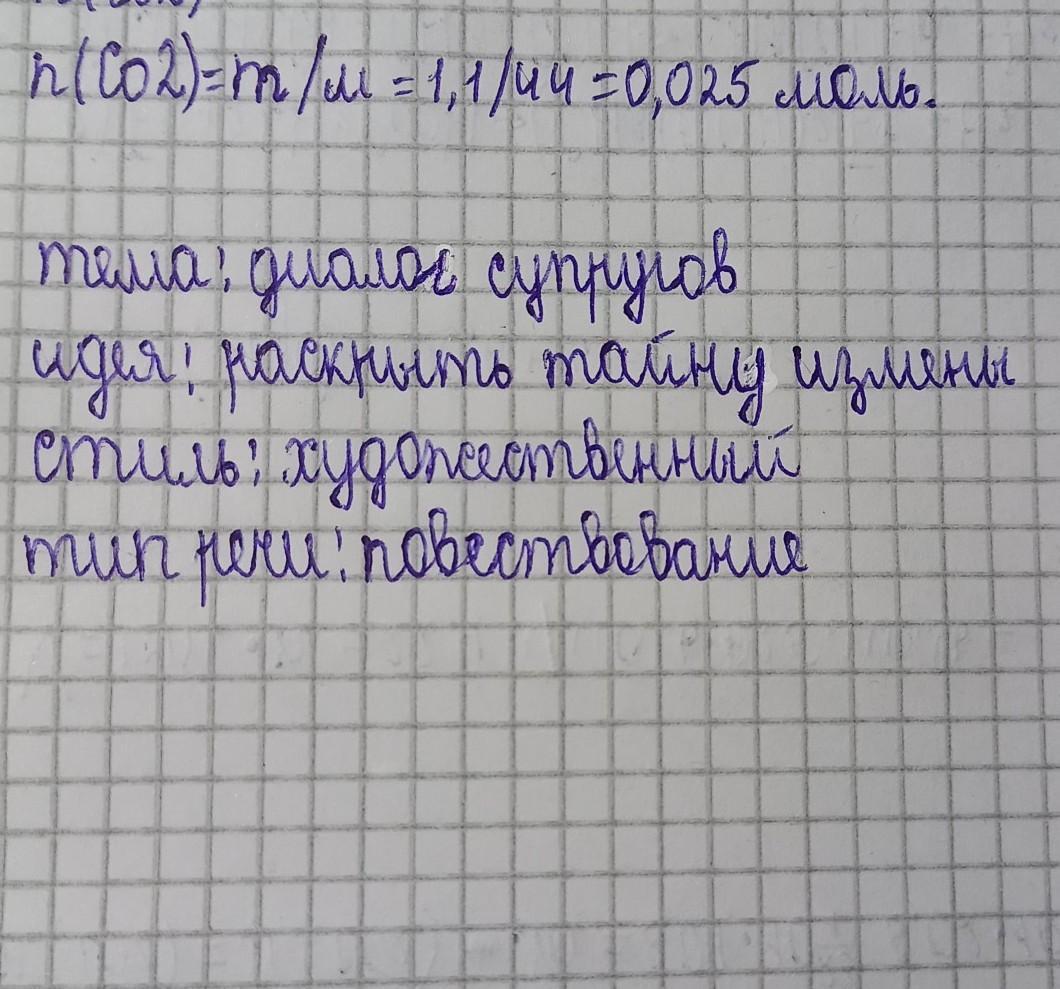 n(Co2)=m/м =1,1/44=0,025 моль.
тема: диалог супругов
идея: раскрыть тайну измены
стиль: художественный
тип речи: повествование